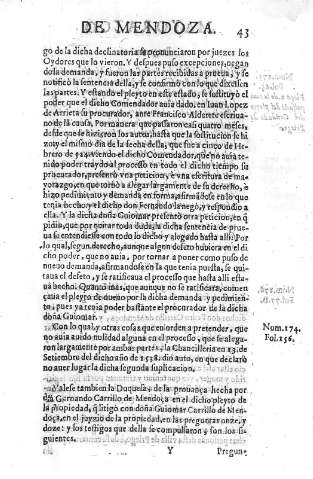 DE MENDOZA. 43
go de la dicha declinatoria se pronunciaron por juezes los
Oydores que lo vieron. Y despues puso excepciones, negan
do la demanda, y fueron las partes recibidas a prueua, y se
notificò la sentencia della, y se confirmò con lo que dixessen
las partes. Y estando el pleyto en este estado, se sustituyò el
poder que el dicho Comendador auia dado, en Iuan Lopez
de Arrieta su procurador, ante Francisco Alderete escriua-
no de la causa, Por manera que passaron casi quatro meses,
desde que se hizieron los autos, hasta que la sustitucion se hi
zo: y el mismo dia de la fecha della, que fue a cinco de Hebre
ro de 554. viendo el dicho Comendador, que no auia te-
nido poder traydo al processo en todo el dicho tiempo su
procurador, presentò vna peticion, è vna escritura de ma-
yorazgo, en que tornò a alegar largamente de su derecho, è
hizo pedimiento, y demanda en forma, afirmandose en lo que
tenia hecho: y el dicho don Fernando lo negò, y respondio a
ella. Y la dicha doña Guiomar presentò otra peticion, en q̃
pidia, que por quitar toda duda, la dicha sentencia de prueua
se entendiesse con todo lo dicho y alegado hasta alli: Por
lo qual, segun derecho, aunque algun defeto huuiera en el di
cho poder, que no auia, por tornar a poner como puso de
nueuo demanda, afirmandose en la que tenia puesta, se qui-
taua el defeto, y se ratificaua el processo que hasta alli esta-
ua hecho. Quanto mas, que aunque no se ratificara, comen
çaria el pleyto de nueuo por la dicha demanda y pedimien-
to, pues ya tenia poder bastante el procurador de la dicha
doña Guiomar.
Con lo qual, y otras cosas que en iorden a pretender, que
no auia auido nulidad alguna en el processo, que se alega-
ron largamente por ambas partes, la Chancilleria en 23. de
Setiembre del dicho año de 1558. dio auto, en que declarò
no auer lugar la dicha segunda suplicacion.
Num. 174.
Fol. 156.
Valese tambien la Duquesa de la prouança hecha por
dõ Gernando Carrillo de Mendoça, en el dicho pleyto de
la propiedad, q̃ litigò con doña Guiomar Carrillo de Mendo
ça, en el juyzio de la propiedad, en las preguntas onze, y
doze: y los testigos que della se compulsaron son los si-
guientes.
Y Pregun-